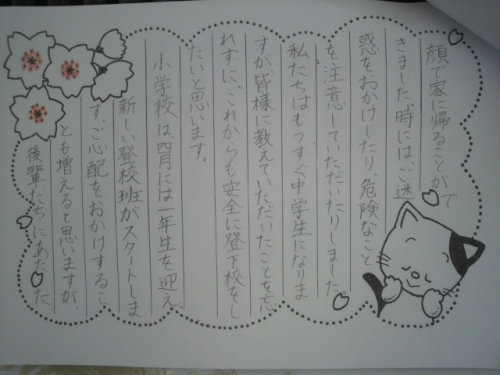 顔で家に帰ることがで
きました。時には、ご迷
惑をおかけしたり、危険なこと
を注意していただいたりしました。
私たちはもうすぐ中学生になりま
すが、皆様に教えていただいたことを忘
れずに、これからも安全に登下校をし
たいと思います。
小学校は、四月には一年生を迎え、
新しい登校班がスタートしま
す。ご心配をおかけするこ
とも増えると思いますが、
後輩たちにあたた